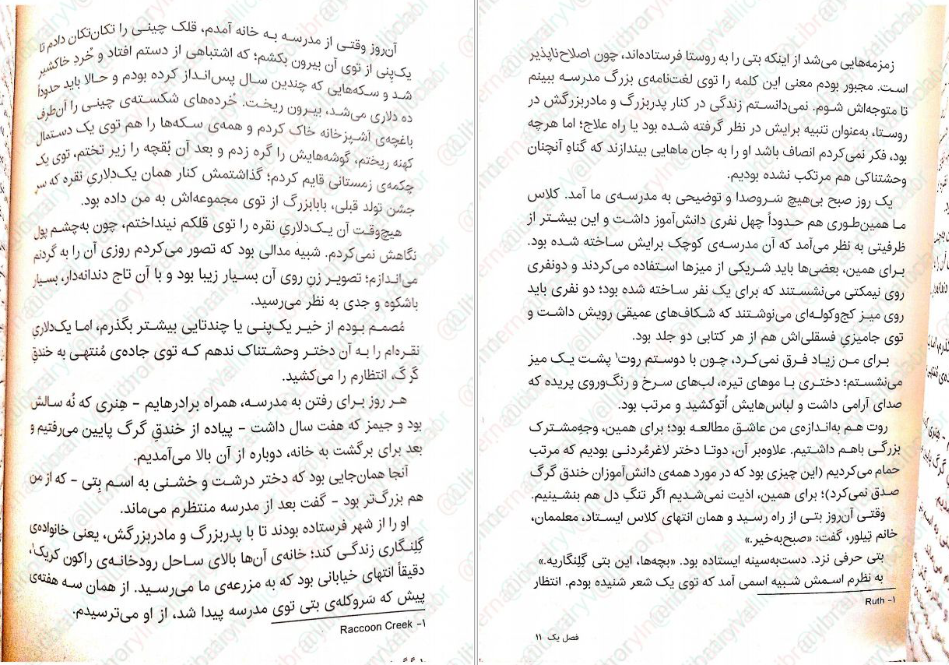 آن‌روز وقتی از مدرسه به خانه آمدم، قلک چینی را تکان‌تکان دادم تا
یک‌پنی از توی آن بیرون بکشم؛ که اشتباهی از دستم افتاد و خُرد خاکشیر
شد و سکه‌هایی که چندین سال پس‌انداز کرده بودم و حالا باید حدوداً
ده دلاری می‌شد، بیرون ریخت. خُرده‌های شکسته‌ی چینی را آن‌طرف
باغچه‌ی آشپزخانه خاک کردم و همه‌ی سکه‌ها را هم توی یک دستمال
کهنه ریختم، گوشه‌هایش را گره زدم و بعد آن بُقچه را زیر تختم، توی یک
چکمه‌ی زمستانی قایم کردم؛ گذاشتمش کنار همان یک‌دلاریِ نقره که سر
جشن تولد قبلی، بابابزرگ از توی مجموعه‌اش به من داده بود.
هیچ‌وقت آن یک‌دلاریِ نقره را توی قلکم نینداختم، چون به‌چشم پول
نگاهش نمی‌کردم. شبیه مدالی بود که تصور می‌کردم روزی آن را به گردنم
می‌اندازم؛ تصویر زنِ روی آن بسیار زیبا بود و با آن تاج دندانه‌دار، بسیار
باشکوه و جدی به نظر می‌رسید.
مُصمم بودم از خیر یک‌پنی یا چندتایی بیشتر بگذرم، اما یک‌دلاریِ
نقره‌ام را به آن دختر وحشتناک ندهم که توی جاده‌ی مُنتهی به خندقِ
گرگ، انتظارم را می‌کشید.
هر روز برای رفتن به مدرسه، همراه برادرهایم - هِنری که نُه سالش
بود و جیمز که هفت سال داشت - پیاده از خندقِ گرگ پایین می‌رفتیم و
بعد برای برگشت به خانه، دوباره از آن بالا می‌آمدیم.
آنجا همان‌جایی بود که دختر درشت و خشنی به اسم بِتی - که از من
هم بزرگ‌تر بود - گفت بعد از مدرسه منتظرم می‌ماند.
او را از شهر فرستاده بودند تا با پدربزرگ و مادربزرگش، یعنی خانواده‌ی
گِلِنگاری زندگی کند؛ خانه‌ی آن‌ها بالای ساحل رودخانه‌ی راکون کریک۱،
دقیقاً انتهای خیابانی بود که به مزرعه‌ی ما می‌رسید. از همان سه هفته‌ی
پیش که سَروکله‌ی بتی توی مدرسه پیدا شد، از او می‌ترسیدم.
۱- Raccoon Creek
زمزمه‌هایی می‌شد از اینکه بتی را به روستا فرستاده‌اند، چون اصلاح‌ناپذیر
است. مجبور بودم معنی این کلمه را توی لغت‌نامه‌ی بزرگ مدرسه ببینم
تا متوجه‌اش شوم. نمی‌دانستم زندگی در کنار پدربزرگ و مادربزرگش در
روستا، به‌عنوان تنبیه برایش در نظر گرفته شده بود یا راه علاج؛ اما هرچه
بود، فکر نمی‌کردم انصاف باشد او را به جان ماهایی بیندازند که گناهِ آنچنان
وحشتناکی هم مرتکب نشده بودیم.
یک روز صبح بی‌هیچ سَروصدا و توضیحی به مدرسه‌ی ما آمد. کلاس
ما همین‌طوری هم حدوداً چهل نفری دانش‌آموز داشت و این بیشتر از
ظرفیتی به نظر می‌آمد که آن مدرسه‌ی کوچک برایش ساخته شده بود.
برای همین، بعضی‌ها باید شریکی از میزها استفاده می‌کردند و دونفری
روی نیمکتی می‌نشستند که برای یک نفر ساخته شده بود؛ دو نفری باید
روی میـز کج‌وکوله‌ای می‌نوشتند که شکاف‌های عمیقی رویش داشت و
توی جامیزیِ فسقلی‌اش هم از هر کتابی دو جلد بود.
برای من زیاد فرق نمی‌کرد، چون با دوستم روت۱ پشت یک میز
می‌نشستم؛ دختری با موهای تیره، لب‌های سرخ و رنگ‌وروی پریده که
صدای آرامی داشت و لباس‌هایش اُتوکشید و مرتب بود.
روت هم به‌اندازه‌ی من عاشق مطالعه بود؛ برای همین، وجهِ‌مشترک
بزرگی باهم داشتیم. علاوه‌بر آن، دوتا دختر لاغرمُردنی بودیم که مرتب
حمام می‌کردیم (این چیزی بود که در مورد همه‌ی دانش‌آموزان خندق گرگ
صدق نمی‌کرد)؛ برای همین، اذیت نمی‌شدیم اگر تنگِ دل هم بنشینیم.
وقتی آن‌روز بتی از راه رسید و همان انتهای کلاس ایستاد، معلممان،
خانم تِیلور، گفت: «صبح‌به‌خیر.»
بتی حرفی نزد. دست‌به‌سینه ایستاده بود. «بچه‌ها، این بتی گلنگاریه.»
به نظرم اسمش شبیه اسمی آمد که توی یک شعر شنیده بودم. انتظار
۱- Ruth
فصل یک ۱۱